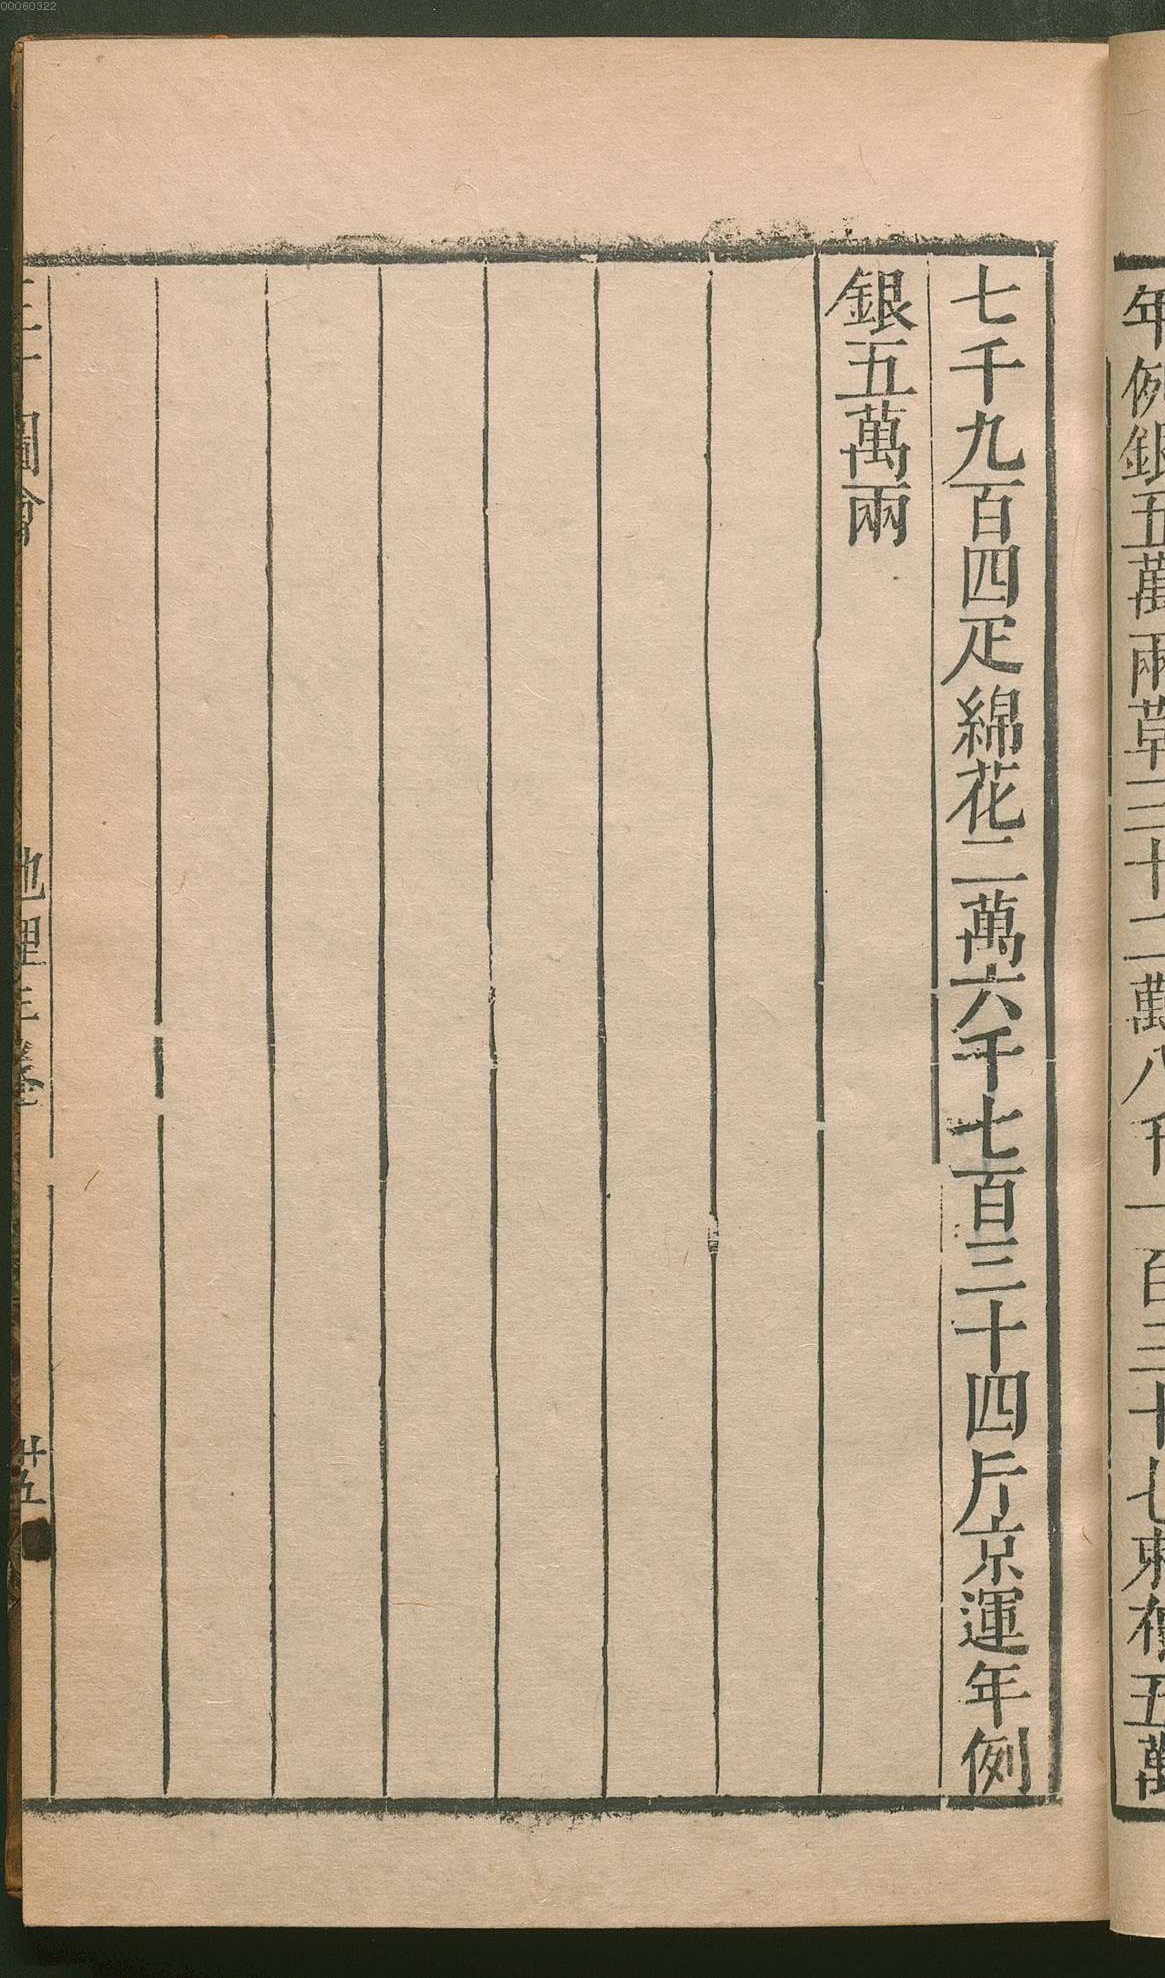 年例銀五萬兩草三十二萬八千一百三十七束布五萬
七千九百四疋綿花二萬六千七百三十四斤京運年例
銀五萬兩
三才圖會 地理三卷 廿五
00060322